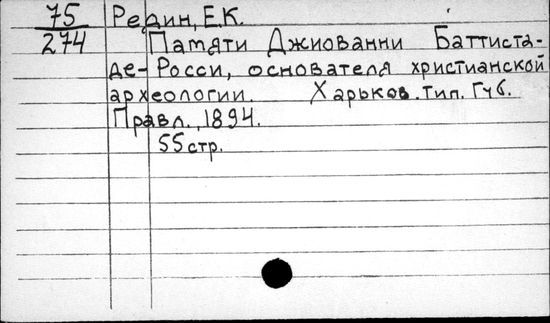 75 Редин, Е.К.
274 Памяти Джиованни Баттиста-
де-Росси, основателя христианской
археологии. Харьков. Тип. Губ.
Правл., 1894.
55 стр.